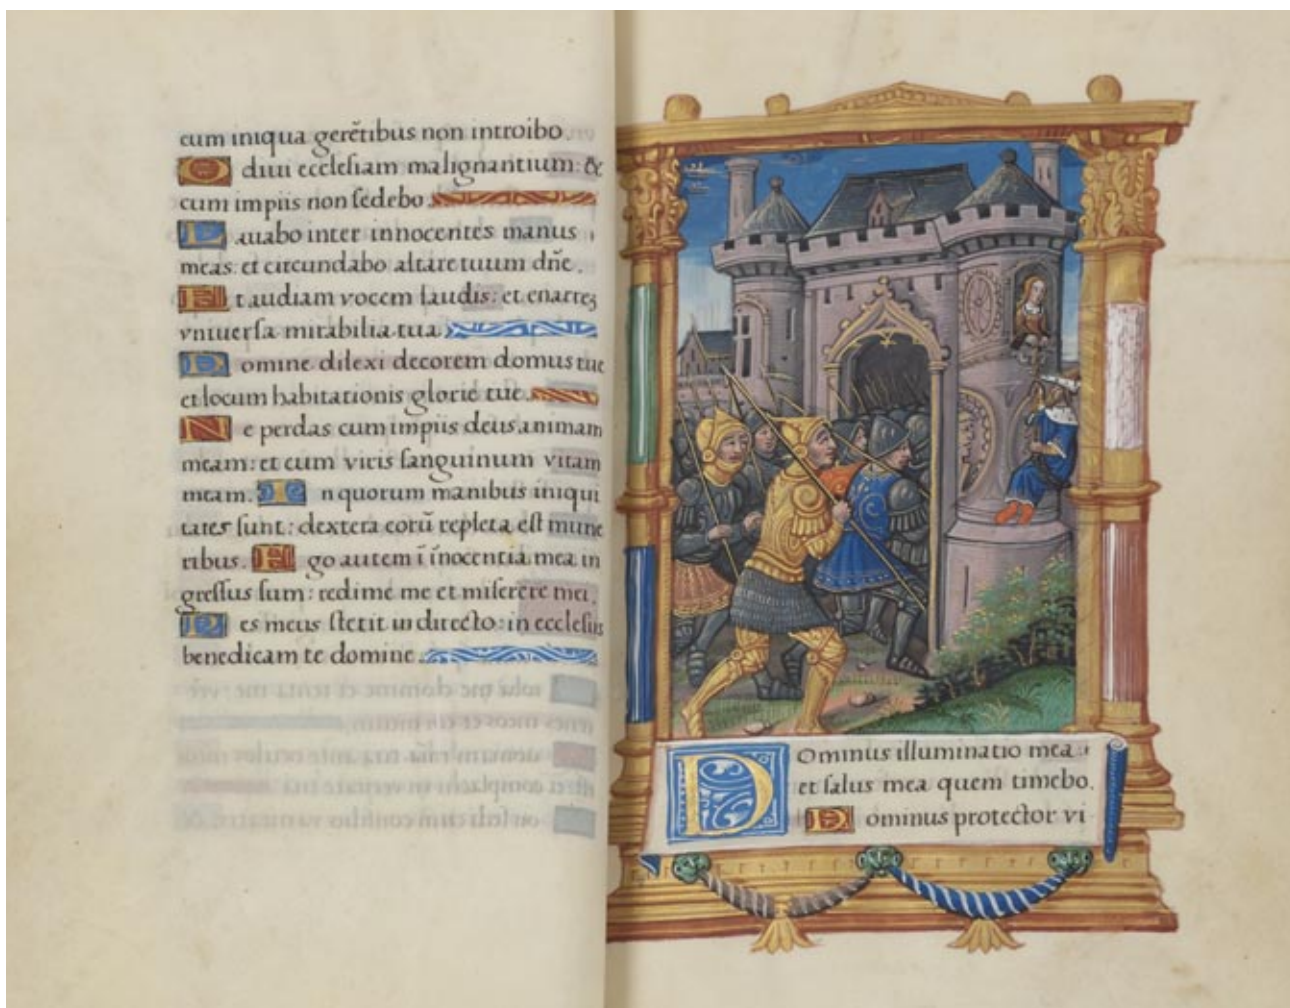 cum iniqua gerẽtibus non introibo.
Odiui ecclesiam malignantium: &
cum impiis non sedebo.
Lauabo inter innocentes manus
meas: et circundabo altare tuum dñe.
Et audiam vocem laudis: et enarrez
vniuersa mirabilia tua.
Domine dilexi decorem domus tue
et locum habitationis glorie tue.
Ne perdas cum impiis deus animam
meam: et cum viris sanguinum vitam
meam. In quorum manibus iniqui
tates sunt: dextera eorũ repleta est mune
ribus. Ego autem ĩ ĩnocentia mea in
gressus sum: redime me et miserere mei.
Pes meus stetit in directo: in ecclesiis
benedicam te domine.
Dominus illuminatio mea:
et salus mea quem timebo.
Dominus protector vi